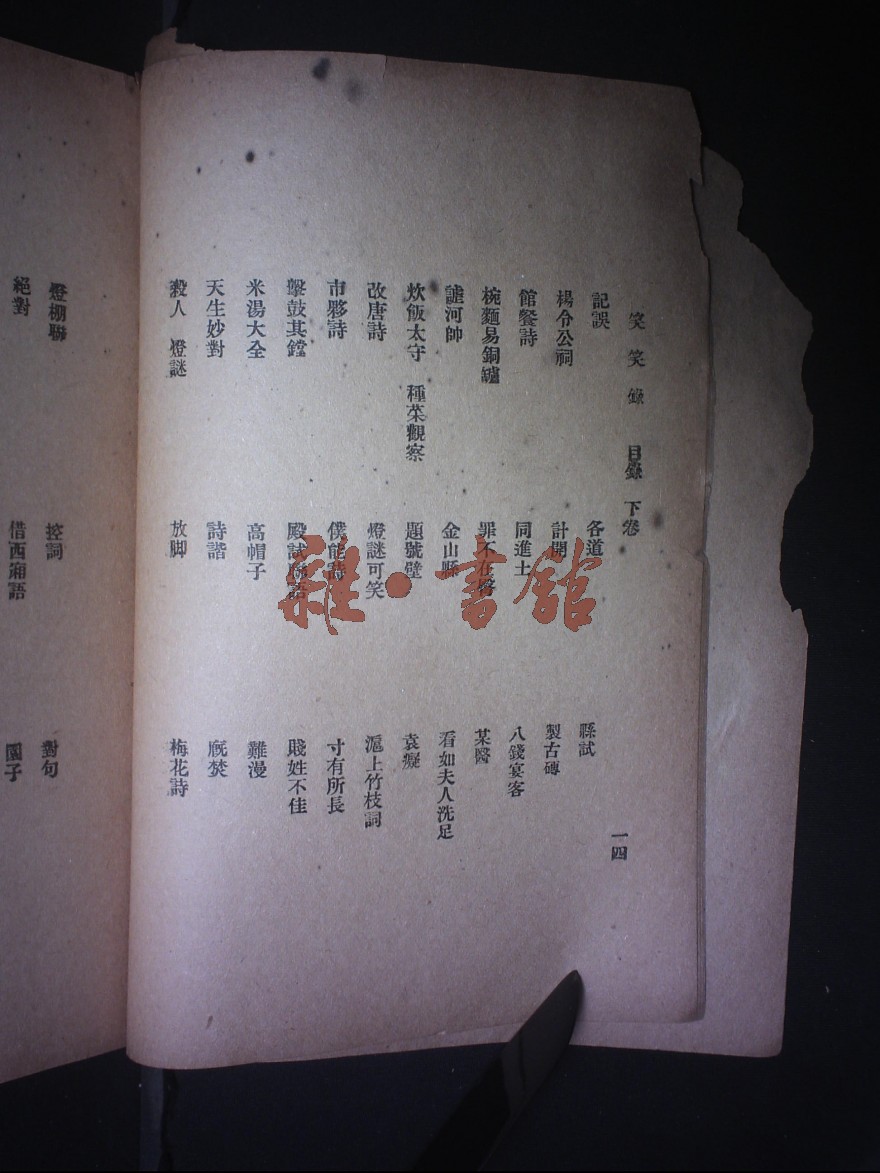 笑笑錄 目錄 下卷 一四
記誤 各道 縣試
楊令公祠 計開 製古磚
館餐詩 同進士 八錢宴客
椀麵易銅罏 罪不在 某醫
謔河帥 金山縣 看如夫人洗足
炊飯太守 種菜觀察 題號壁 袁癡
改唐詩 燈謎可笑 滬上竹枝詞
市夥詩 僕能詩 寸有所長
擊鼓其鏜 殿試 語 賤姓不佳
米湯大全 高帽子 難漫
天生妙對 詩諧 廐焚
殺人 燈謎 放脚 梅花詩
燈棚聯 控詞 對句
絕對 借西廂語 園子
雜·書館